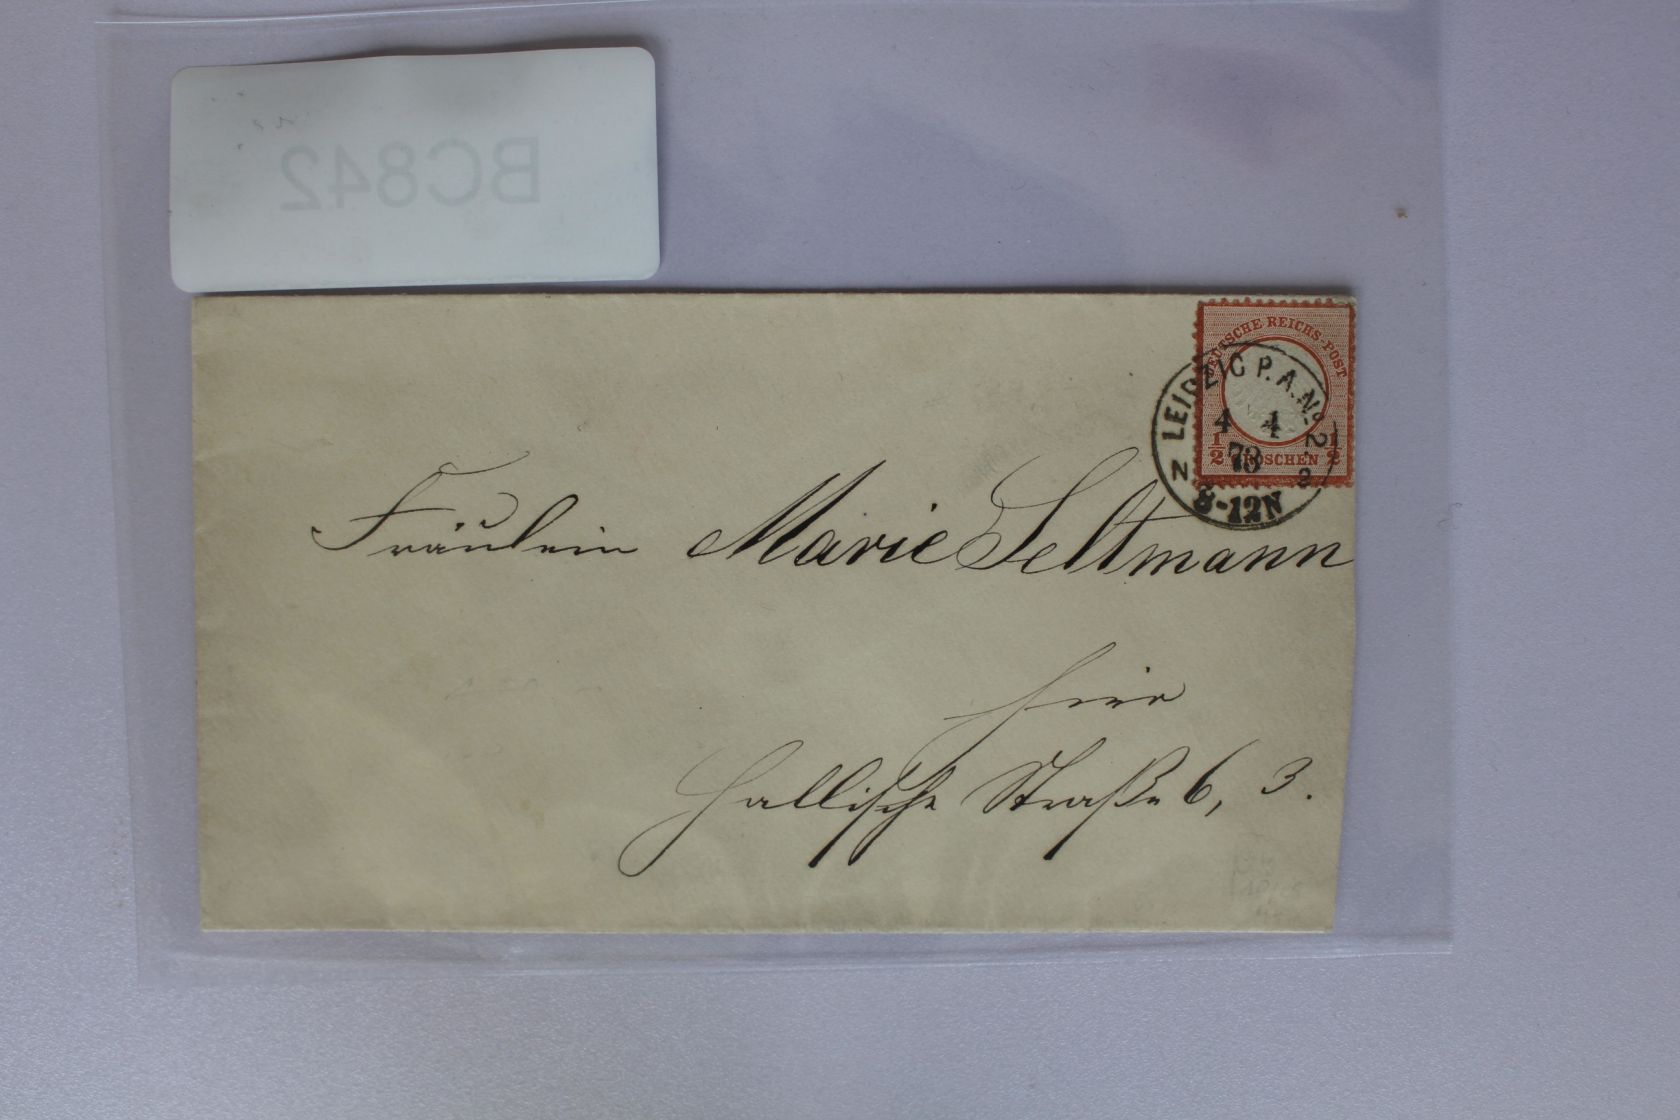 BC842
DEUTSCHE REICHS-POST
1/2 GROSCHEN 1/2
LEIPZIG P.A. No 2.
4 4
73
8-12N
Fräulein Marie Seltmann
hier
Hallische Straße 6, 3.